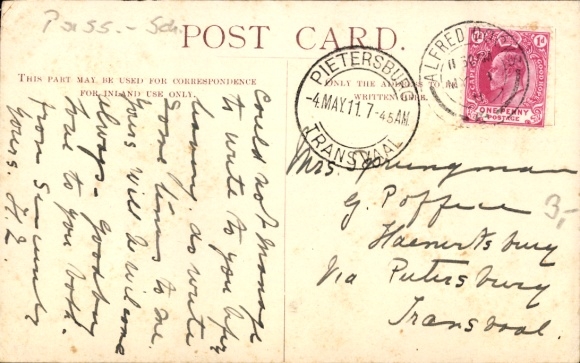 Pass. - Sch.
POST CARD.
THIS PART MAY BE USED FOR CORRESPONDENCE
FOR INLAND USE ONLY.
ONLY THE ADDRESS TO BE
WRITTEN HERE.
Could not manage
to write to you before
leaving. do write
some times to me
yours will be welcome
always - goodbye
love to you both.
from sincerely
yours.
PIETERSBURG
-4.MAY.11.7-45AM
TRANSVAAL
ALFRED
CAPE OF GOOD HOPE
1d.
1d.
ONE PENNY
POSTAGE
Mrs. Jungman
P. office
Haenertsburg
Via Pietersburg
Transvaal.
3,-